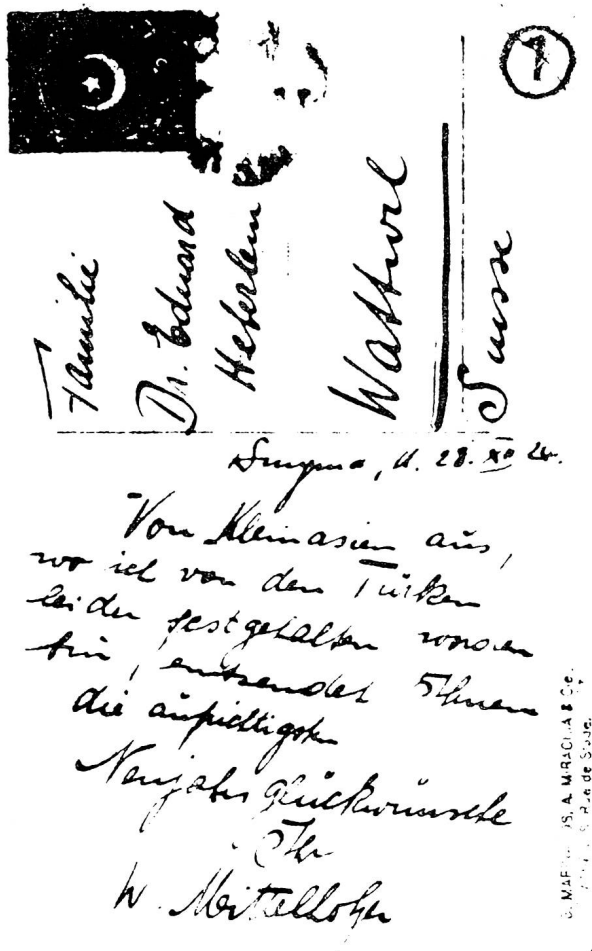 1
Familie
Dr. Eduard
Heberlein
Wattwil
Suisse
Smyrna, d. 28. XII 24.
Von Kleinasien aus,
wo ich von den Türken
leider festgehalten worden
bin, entsendet Ihnen
die aufrichtigsten
Neujahrsglückwünsche
Ihr
W. Mittelholzer
A. MIRAGLIA & Cie.
Rue de Stade.